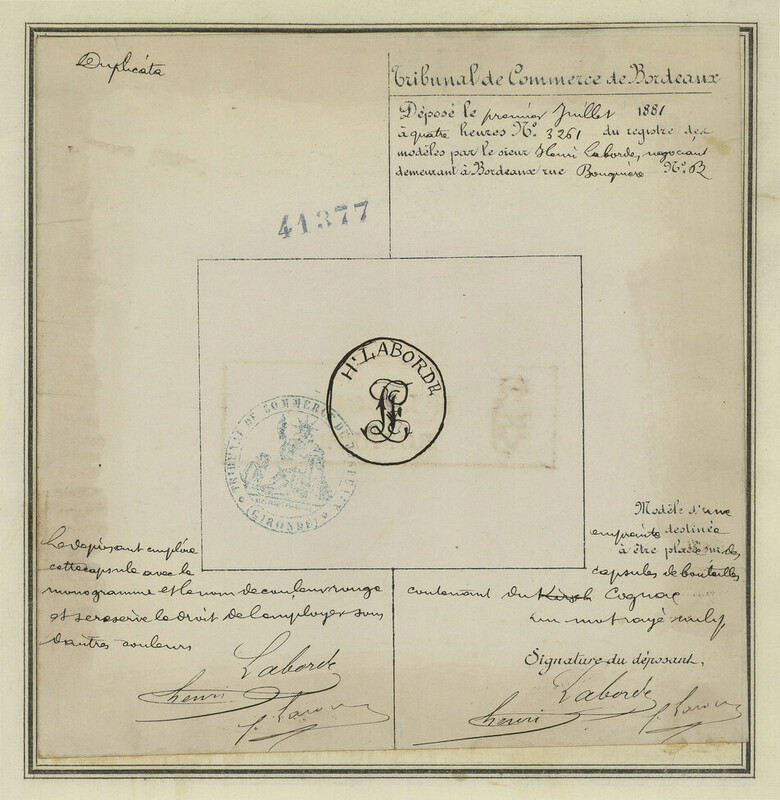 Duplicata
Tribunal de Commerce de Bordeaux
Déposé le premier Juillet 1881
à quatre heures No. 3261 du registre des
modèles par le sieur Henri Laborde, négociant
demeurant à Bordeaux rue Bouquière No.
41377
Hi LABORDE
TRIBUNAL DE COMMERCE DE
(GIRONDE)
Le déposant emploie
cette capsule avec le
monogramme et le nom de couleur rouge
et se réserve le droit de l'employer sous
d'autres couleurs
Henri Laborde
Modèle d'une
empreinte destinée
à être placée sur des
capsules de bouteilles
contenant du Kirsch Cognac
un mot rayé nul
Signature du déposant,
Henri Laborde